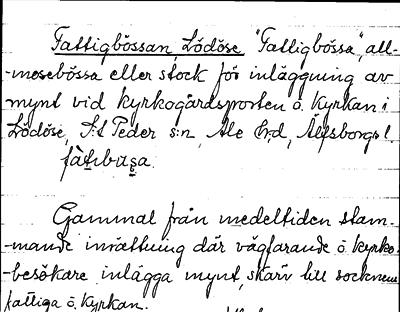 Fattigbössan, Lödöse "Fattigbössa", all-
-mosebössa eller stock för inläggning av
mynt vid kyrkogårdsporten o. Kyrkan i
Lödöse, S:t Peder s:n, Ale h:d, Älfsborgs l.
Gammal från medeltiden stam-
-mande inrättning där vägfarande o kyrko-
-besökare inlägga mynt, skärv till socknens
fattiga o. Kyrkan.